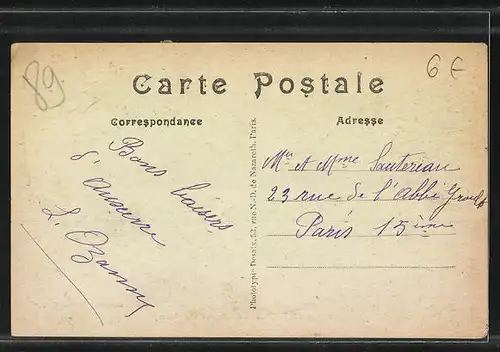 89
6 €
Carte Postale
Correspondance
Adresse
Bons baisers
d'Auxerre
L. Ozanne
Phototypie Desaix, 53, rue N.-D. de Nazareth, Paris.
Mr et Mme Sautereau
23 rue de l'Abbé Groult
Paris 15ème